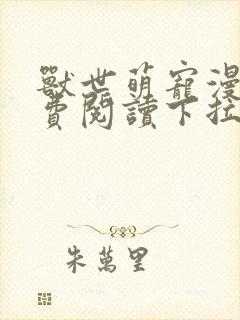 獸世萌寵漫
費閱讀下拉
朱萬里